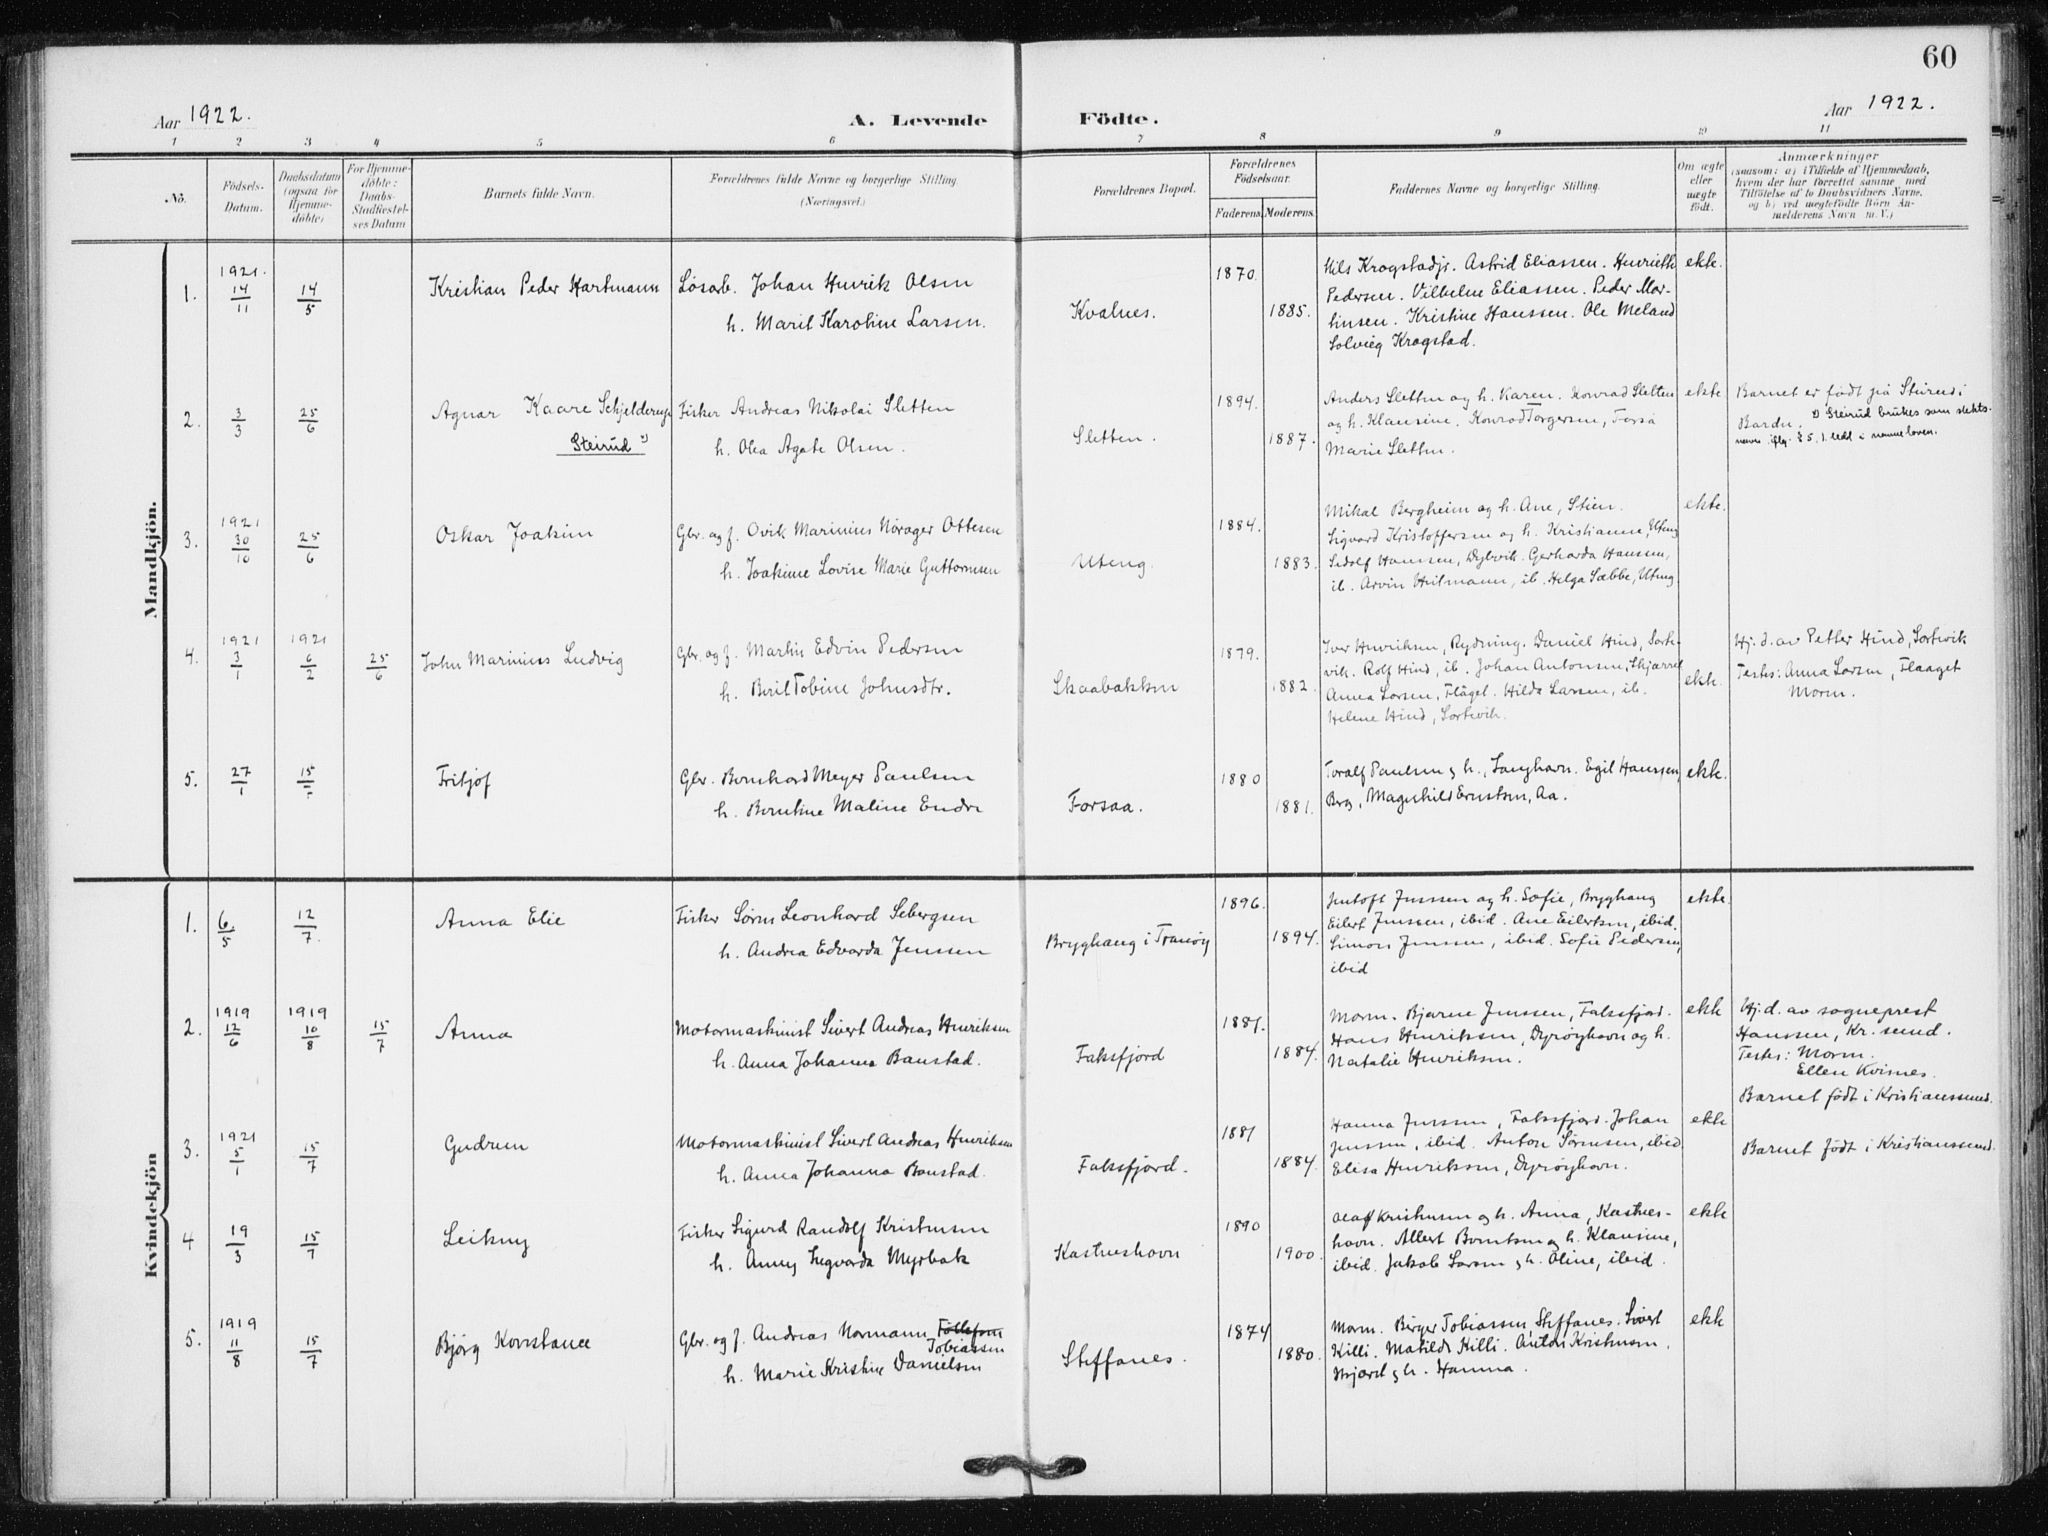 60
Aar 1922.
A. Levende Födte.
Aar 1922.
1 2 3 4 5 6 7 8 9 10 11
No.
Födsels-
Datum.
Daabsdatum
(ogsaa for
Hjemme-
döbte)
For Hjemme-
döbte:
Daabs-
Stadfæstel-
ses Datum
Barnets fulde Navn.
Forældrenes fulde Navne og borgerlige Stilling.
(Næringsvei.)
Forældrenes Bopæl.
Forældrenes
Födselsaar.
Faderens. Moderens.
Faddernes Navne og borgerlige Stilling.
Om ægte
eller
uægte
födt.
Anmærkninger
(saasom: a) i Tilfælde af Hjemmedaab,
hvem der har forrettet samme med
Tilföielse af to Daabsvidners Navne,
og b) ved uægtefödte Börn An-
melderens Navn m. V.)
Mandkjön.
1. 1921. 14/11 14/5 Kristian Peder Hartmann
Løsarb. Johan Henrik Olsen
h. Marit Karoline Larsen.
Kvalnes.
1870. 1885.
Nils Krogstad jr. Astrid Eliassen. Henriette
Pedersen. Vilhelme Eliassen. Peder Mar-
tinsen. Kristine Hanssen. Ole Meland
Solveig Krogstad.
ekte.
2. 3/3 25/6 Agnar Kaare Schjelderup
Steirud 1)
Fisker Andreas Nikolai Sletten
h. Olea Agate Olsen.
Sletten.
1894. 1887.
Anders Sletten og h. Karen. Konrad Sletten
og h. Klausine. Konrad Torgersen, Forså
Marie Sletten.
ekte
Barnet er født på Steirud i
Bardu.
1) Steirud brukes som slekts-
navn iflg. § 5, 1. ledd i navneloven.
3. 1921 30/10 25/6 Oskar Joakim
Gbr. og f. Ovik Marinius Nörager Ottesen
h. Joakime Lovise Marie Guttormsen
Uteng.
1884. 1883.
Mikal Bergheim og h. Ane, Stien.
Sigvard Kristoffersen og h. Kristianne, Uteng
Sedolf Hanssen, Dybvik. Gerharda Hanssen,
ib. Arvin Heitmann, ib. Helga Sæbbe, Uteng
ekte.
4. 1921 3/1 1921 6/2 25/6 John Marinius Ludvig
Gbr. og f. Martin Edvin Pedersen
h. Berit Tobine Johnsdtr.
Skaabakken
1879. 1882.
Iver Henriksen, Rydning. Daniel Hind, Sørt-
vik. Rolf Hind, ib. Johan Antonsen, Skjærret
Anna Larsen, Flåget. Hilda Larsen, ib.
Helene Hind, Sørtvik.
ekte.
Hj. d. av Petter Hind, Sørtvik
Testes: Anna Larsen, Flaaget
Moren.
5. 27/1 15/ Fritjof
Gbr. Bernhard Meyer Paulsen
h. Berntine Maline Endre
Forsaa.
1880 1881.
Toralf Paulsen og h., Langhavn. Egil Hanssen,
Berg, Magnhild Ernstsen, Aa.
ekte.
Kvindekjön
1. 6/5 12/7. Anna Elie
Fisker Sørens Leonhard Sebergsen
h. Andrea Edvarda Jenssen
Brygghaug i Tranøy
1896. 1894.
Jentoft Jenssen og h. Sofie, Brygghaug
Eilert Jenssen, ibid. Ane Eilertsen, ibid.
Simon Jenssen, ibid. Sofie Pedersen,
ibid
ekte.
2. 1919 12/6 1919 10/8 15/7 Anna
Motormaskinist Sivert Andreas Henriksen
h. Anna Johanna Banstad.
Faksfjord
1881. 1884.
Moren. Bjarne Jenssen, Faksfjord.
Hans Henriksen, Dyrøyhavn og h.
Natalie Henriksen.
ekte
Hj. d. av sogneprest
Hanssen, Kr. sund.
Testes: Moren.
Ellen Kvisnes.
Barnet født i Kristianssund.
3. 1921 5/1 15/7 Gudrun
Motormaskinist Sivert Andreas Henriksen
h. Anna Johanna Banstad.
Faksfjord.
1881 1884.
Hanna Jenssen, Faksfjord. Johan
Jenssen, ibid. Anton Sørensen, ibid
Elisa Henriksen, Dyrøyhavn.
ekte
Barnet født i Kristianssund.
4 19/3 15/7 Leikny
Fisker Sigurd Randolf Kristensen
h. Anny Ingvarda Myrbak
Kastneshavn
1890 1900.
Olaf Kristensen og h. Anna, Kastnes-
havn. Albert Berntsen og h. Klausine,
ibid. Jakob Larsen og h. Oline, ibid.
ekte
5. 1919 11/8 15/7 Bjørg Konstance
Gbr. og f. Andreas Normann Tollefsen
Tobiassen
h. Marie Kristine Danielsen
Steffanes.
1874 1880.
Moren. Birger Tobiassen Steffanes. Sivert
Killi. Matilde Killi. Anton Kristensen,
og h. Hanna.
ekte